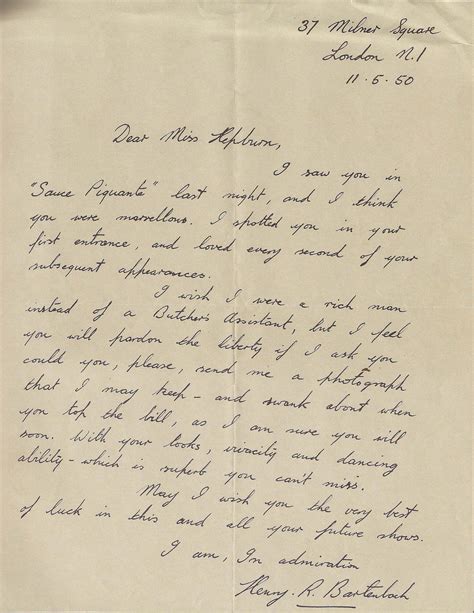 37 Milner Square
London N.1
11.5.50
Dear Miss Hepburn,
I saw you in
"Sauce Piquante" last night, and I think
you were marvellous. I spotted you in your
first entrance, and loved every second of your
subsequent appearances.
I wish I were a rich man
instead of a Butcher's Assistant, but I feel
you will pardon the liberty if I ask you
could you, please, send me a photograph
that I may keep - and swank about when
you top the bill, as I am sure you will
soon. With your looks, vivacity and dancing
ability - which is superb you can't miss.
May I wish you the very best
of luck in this and all your future shows.
I am, In admiration
Henry. R. Bartenbach